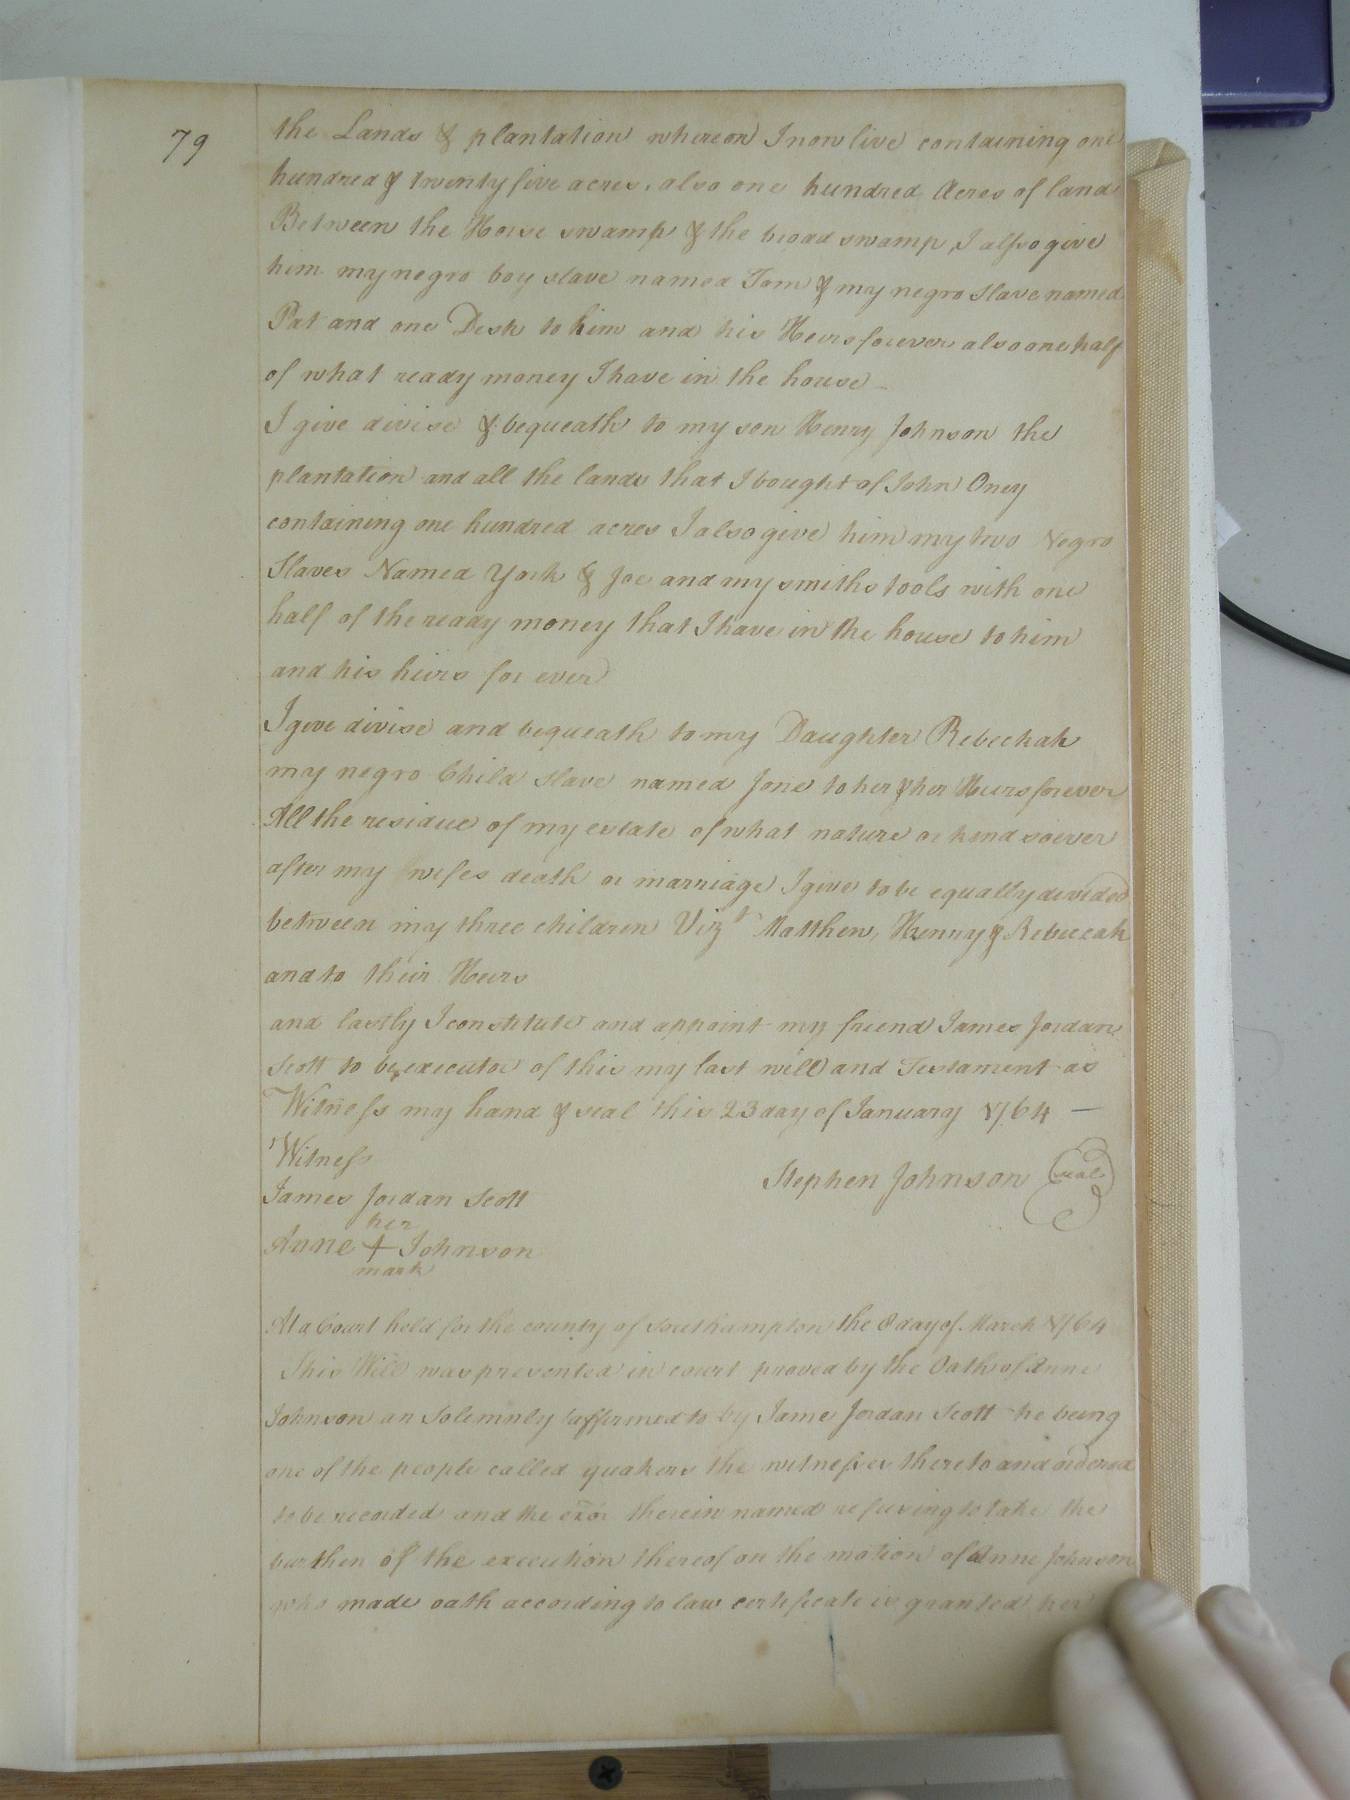 79
the Lands & plantation whereon I now live containing one
hundred & twenty five acres, also one hundred Acres of land
Between the Horse swamp & the broad swamp, I also give
him my negro boy slave named Tom & my negro Slave named
Pat and one Desk to him and his Heirs forever also one half
of what ready money I have in the house
I give divise & bequeath to my son Henry Johnson the
plantation and all the lands that I bought of John Oney
containing one hundred acres I also give him my two Negro
Slaves Named York & Joe and my smiths tools with one
half of the ready money that I have in the house to him
and his heirs for ever
I give divise and bequeath to my Daughter Rebeckah
my negro Child slave named Jone to her & her Heirs forever
All the residue of my estate of what nature or kind soever
after my wifes death or marriage I give to be equally devided
between my three children Vizt Matthew, Henry & Rebeccah
and to their Heirs
and lastly I constitute and appoint my friend James Jordan
Scott to be executor of this my last will and Testament as
Witness my hand & seal this 23 day of January 1764 —
Witness
Stephen Johnson seal
James Jordan Scott
her
Anne + Johnson
mark
At a Court held for the county of Southampton the 8 day of March 1764
This Will was presented in court proved by the Oath of Anne
Johnson an Solemnly affirmed to by Jame Jordan Scott he being
one of the people called quakers the witnesses thereto and ordered
to be recorded and the exor therein named refusing to take the
burthen of the execution thereof on the motion of Anne Johnson
who made oath according to law certificate is granted her